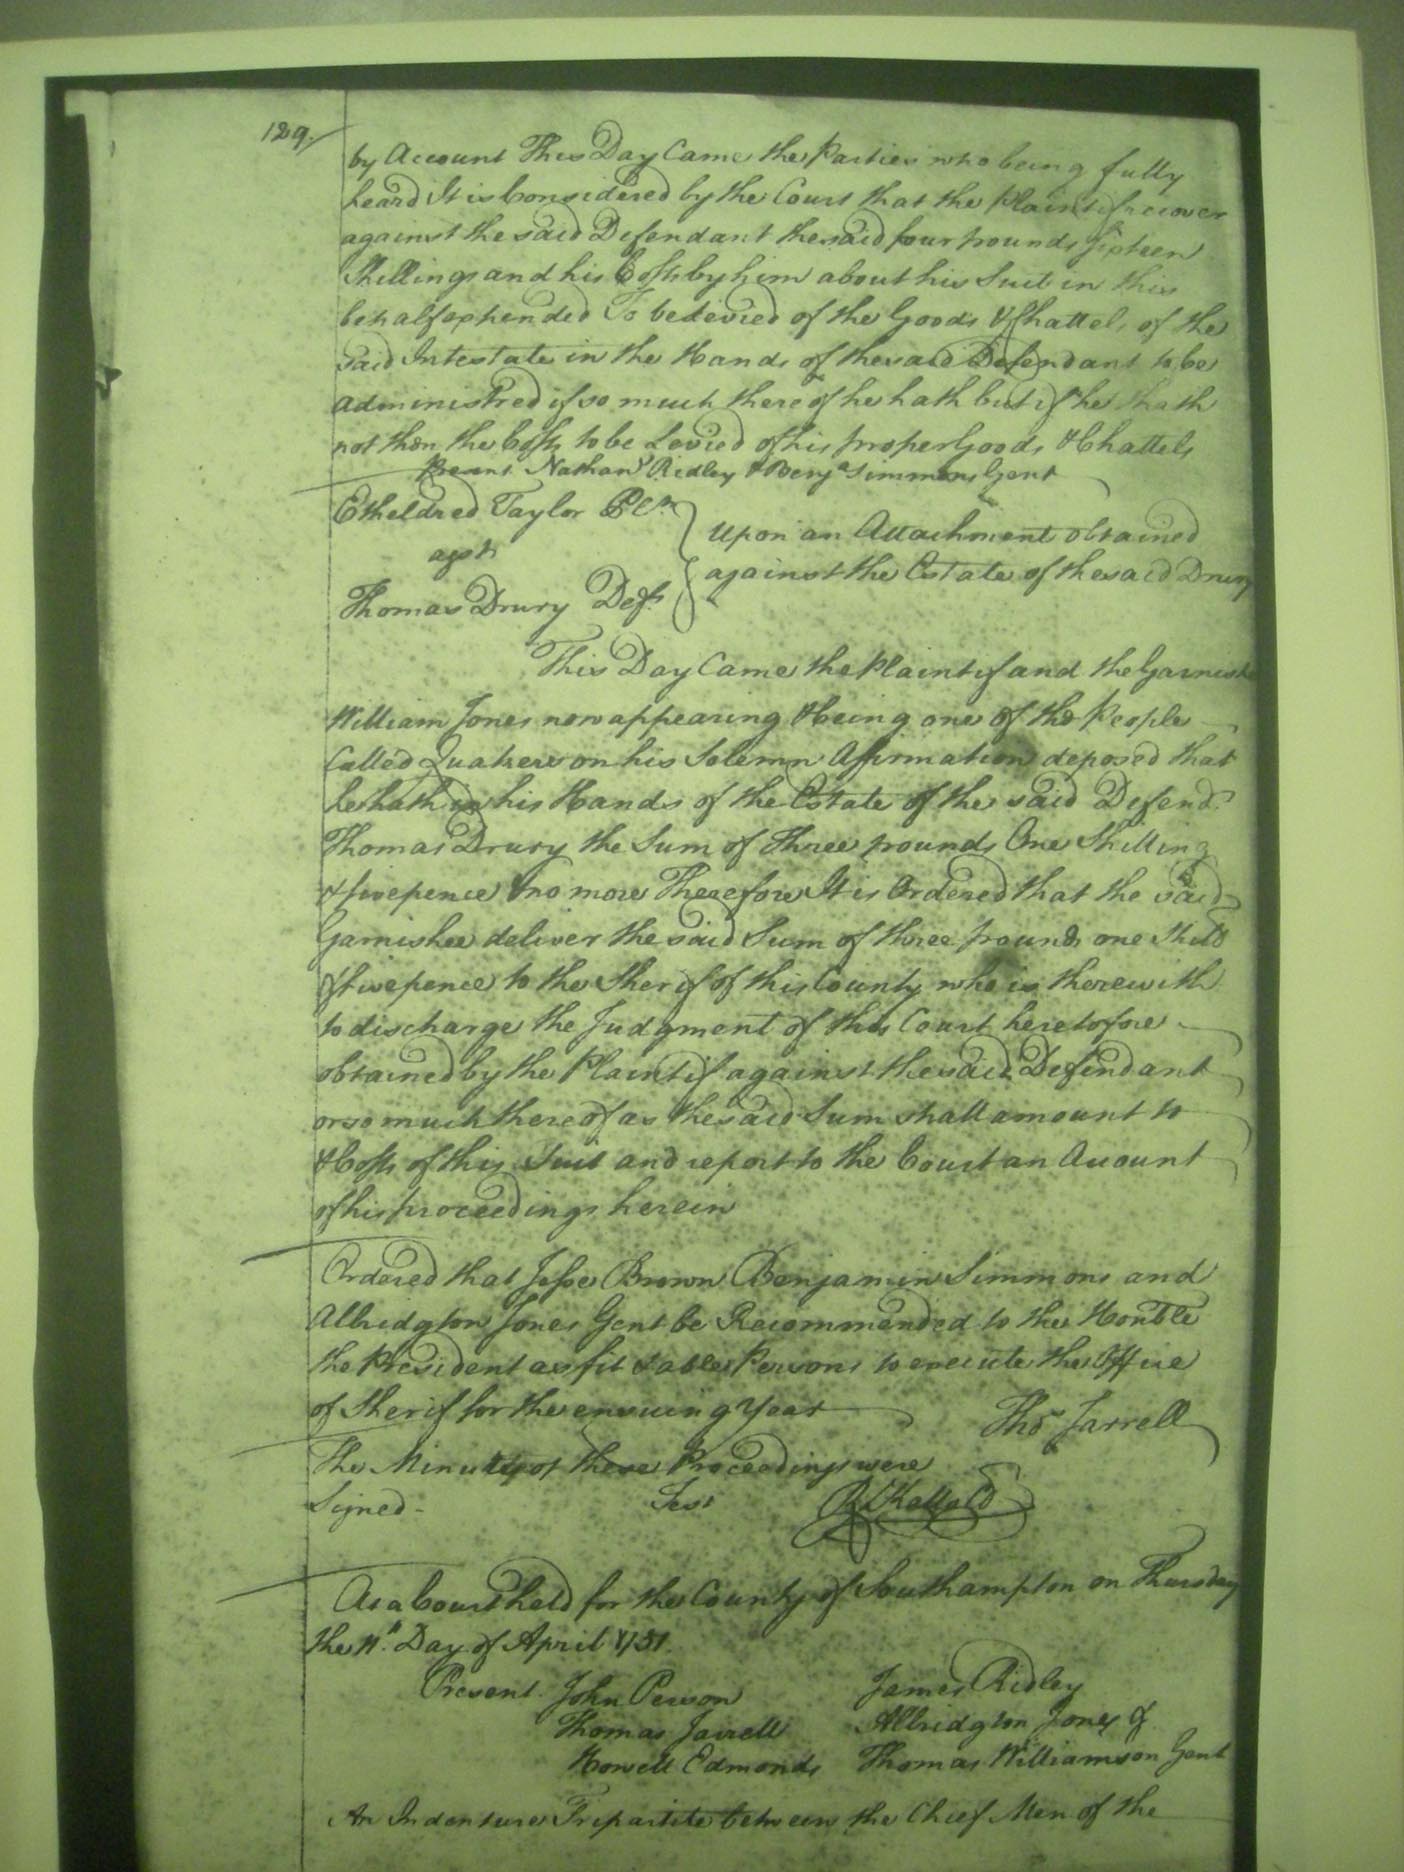 129.
by Account This Day Came the Parties who being fully
heard It is Considered by the Court that the Plaintif recover
against the said Defendant the said four pounds Sixteen
Shillings and his Costs by him about his Suit in this
behalf expended To be Levied of the Goods & Chattels of the
said Intestate in the Hands of the said Defendant to be
administred if so much thereof he hath but if he hath
not then the Costs to be Levied of his proper Goods & Chattels
Present Nathanl Ridley & Benja Simmons Gent
Etheldred Taylor
Upon an Attachment obtained
agst
against the Estate of the said Drury
Thomas Drury Deft
This Day Came the Plaintif and the Garnishee
William Jones now appearing & being one of the People
Called Quakers on his Solemn Affirmation deposed that
he hath in his Hands of the Estate of the said Defendt
Thomas Drury the Sum of Three pounds One Shilling
& fivepence & no more Therefore It is Ordered that the said
Garnishee deliver the said Sum of three pounds one Shill
& fivepence to the Sherif of this County who is therewith
to discharge the Judgment of this Court heretofore
obtained by the Plaintif against the said Defendant
or so much thereof as the said Sum shall amount to
& Costs of this Suit and report to the Court an Account
of his proceedings herein
Ordered that Jesse Brown Benjamin Simmons and
Albridgton Jones Gent be Recommended to the Honble
the President as fit & able Persons to execute the Office
of Sherif for the ensuing Year
Thos Jarrell
The Minutes of these Proceedings were
Signed - Test
At a Court held for the County of Southampton on Thursday
the 11th Day of April 1751.
Present. John Person James Ridley
Thomas Jarrell Albridgton Jones &
Howell Edmonds Thomas Williamson Gent
An Indenture Tripartite between the Chief Men of the